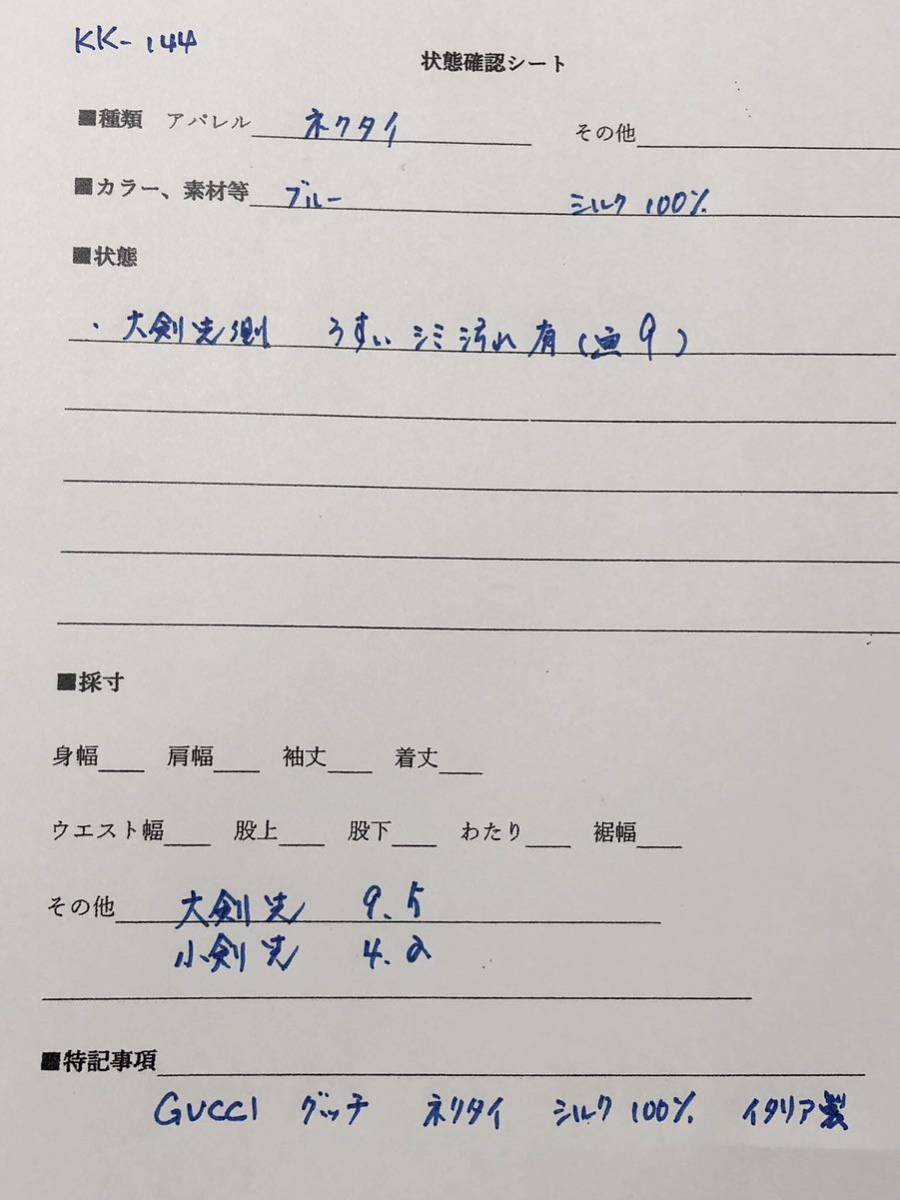 KK-144
状態確認シート
■種類 アパレル ネクタイ その他
■カラー、素材等 ブルー シルク 100%
■状態
・大剣先側 うすいシミ汚れ有(画9)
■採寸
身幅 肩幅 袖丈 着丈
ウエスト幅 股上 股下 わたり 裾幅
その他 大剣先 9.5
小剣先 4.2
■特記事項
GUCCI グッチ ネクタイ シルク 100% イタリア製